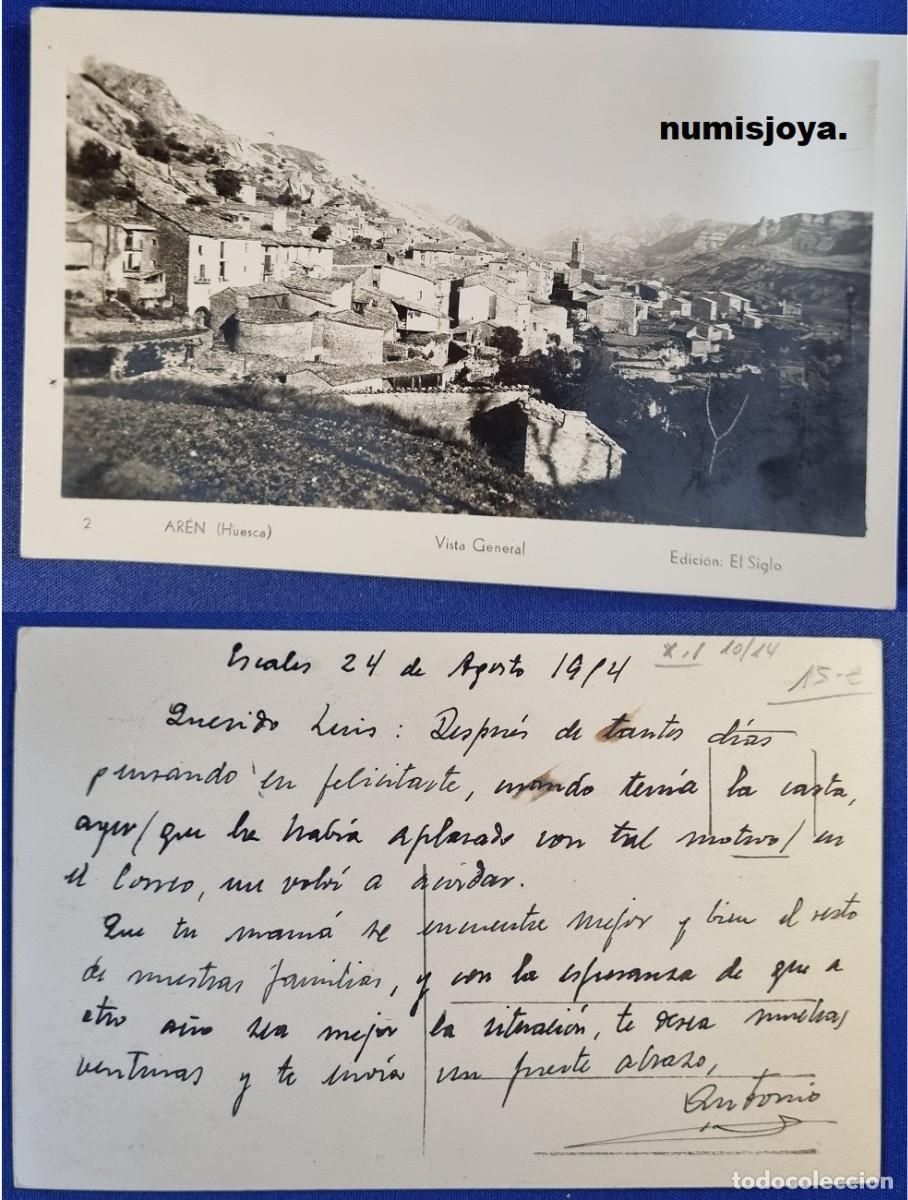 numisjoya.
2 ARÉN (Huesca) Vista General Edición: El Siglo
Escales 24 de Agosto 1954
x.1 10/14
15-€
Querido Luis: Después de tantos días
pensando en felicitarte, cuando tenía la carta,
ayer/ que la había aplazado con tal motivo/ en
el Correo, me volví a acordar.
Que tu mamá se encuentre mejor y bien el resto
de nuestras familias, y con la esperanza de que a
otro año sea mejor la situación, te desea muchas
venturas y te envía un fuerte abrazo,
Antonio
todocoleccion